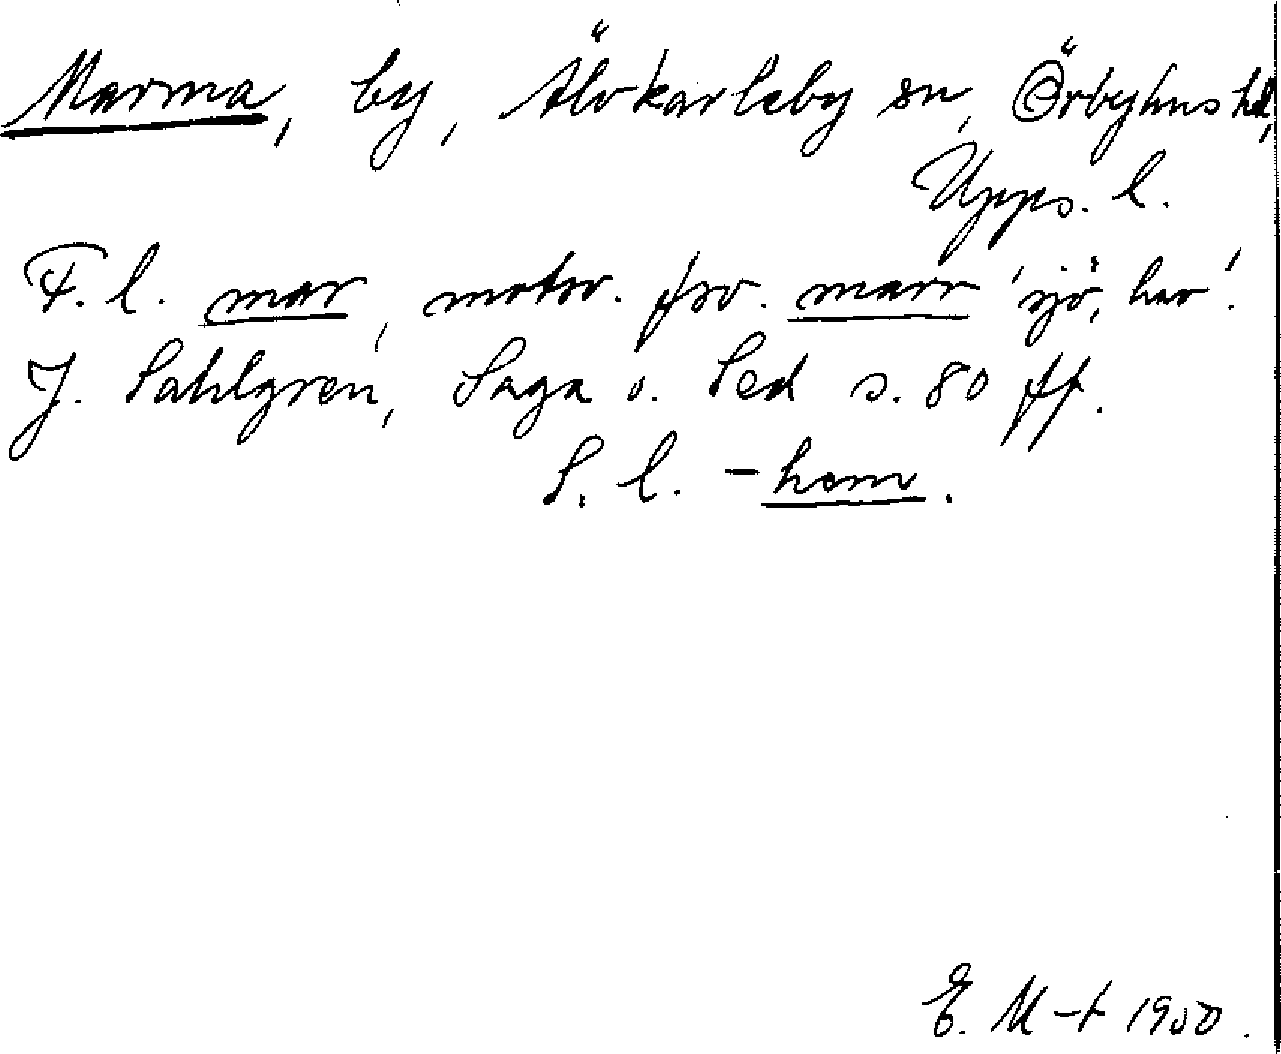 Marma, by, Älvkarleby sn, Örbyhus hd,
Upps. l.
F. l. mar, motsv. fsv. marr 'sjö, hav'.
J. Sahlgren, Saga o. Sed s. 80 ff.
S. l. -hem.
E. M-t 1950.